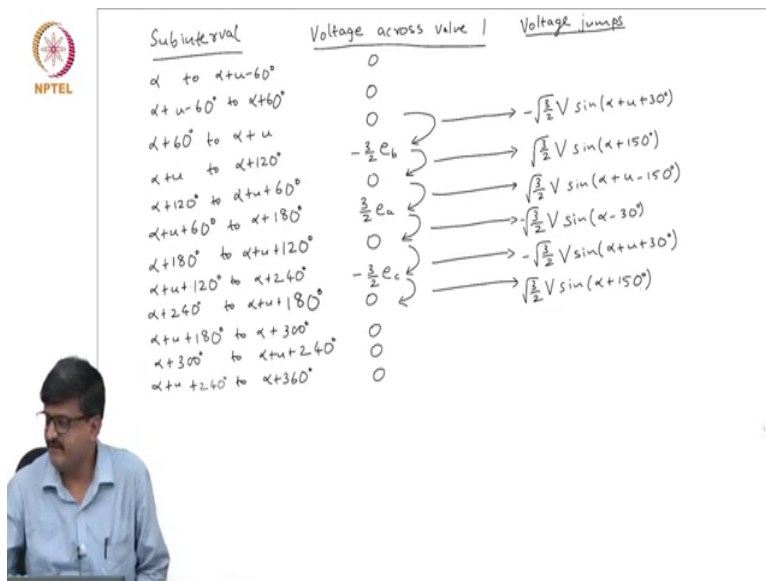 NPTEL
Subinterval Voltage across valve 1 Voltage jumps
α to α+u-60° 0
α+u-60° to α+60° 0
α+60° to α+u 0 → -√3/2 V sin(α+u+30°)
α+u to α+120° -3/2 e_b → √3/2 V sin(α+150°)
α+120° to α+u+60° 0 → √3/2 V sin(α+u-150°)
α+u+60° to α+180° 3/2 e_a → -√3/2 V sin(α-30°)
α+180° to α+u+120° 0 → -√3/2 V sin(α+u+30°)
α+u+120° to α+240° -3/2 e_c → √3/2 V sin(α+150°)
α+240° to α+u+180° 0
α+u+180° to α+300° 0
α+300° to α+u+240° 0
α+u+240° to α+360° 0